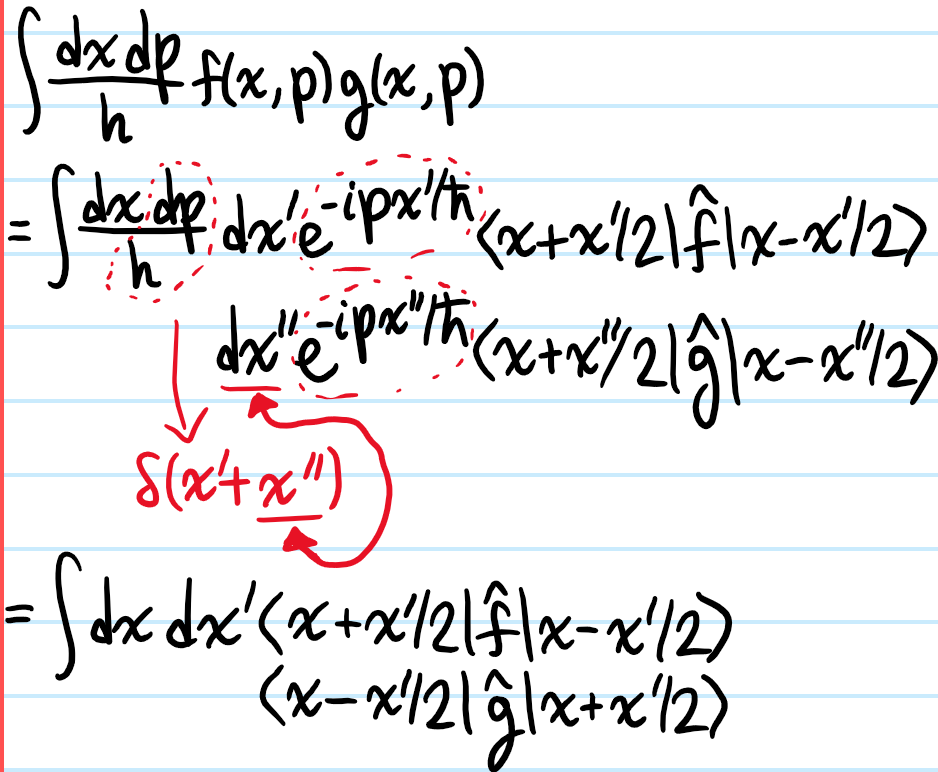 ∫ dx dp / h f(x, p) g(x, p)
= ∫ dx dp / h dx' e^{-ipx'/ħ} ⟨x+x'/2| f̂ |x-x'/2⟩
dx'' e^{-ipx''/ħ} ⟨x+x''/2| ĝ |x-x''/2⟩
δ(x'+x'')
= ∫ dx dx' ⟨x+x'/2| f̂ |x-x'/2⟩
⟨x-x'/2| ĝ |x+x'/2⟩